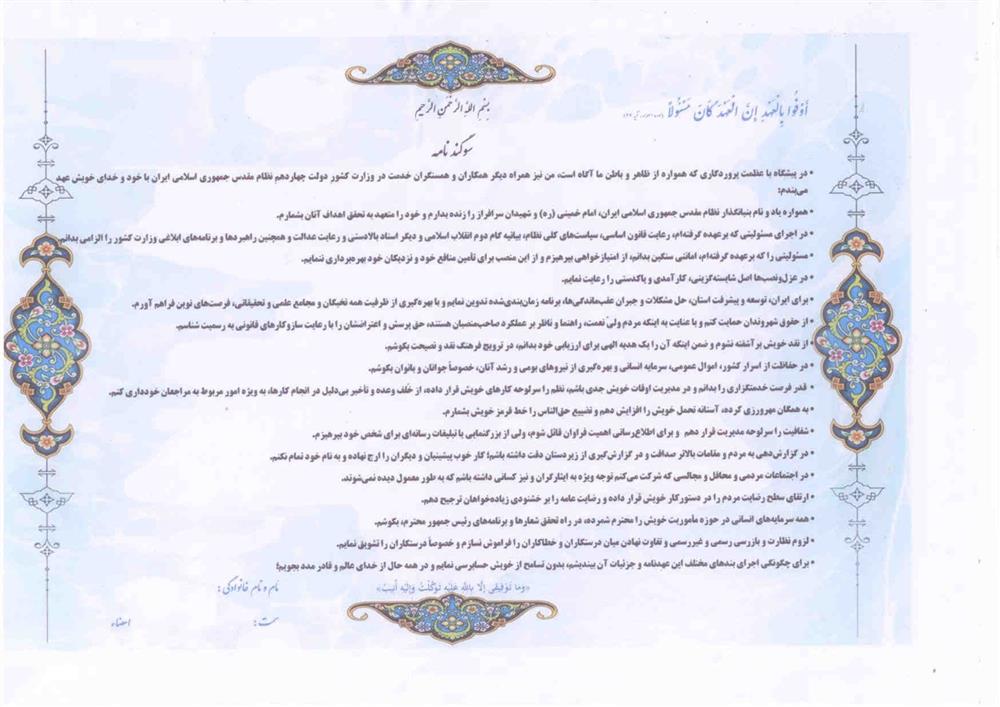 بسم الله الرحمن الرحیم
أَوْفُوا بِالْعَهْدِ إِنَّ الْعَهْدَ كَانَ مَسْئُولاً
سوگند نامه
• در پیشگاه با عظمت پروردگاری که همواره از ظاهر و باطن ما آگاه است، من نیز همراه دیگر همکاران و همسنگران خدمت در وزارت کشور دولت چهاردهم نظام مقدس جمهوری اسلامی ایران با خود و خدای خویش عهد
می‌بندم:
• همواره یاد و نام بنیانگذار نظام مقدس جمهوری اسلامی ایران، امام خمینی (ره) و شهیدان سرافراز را زنده بدارم و خود را متعهد به تحقق اهداف آنان بشمارم.
• در اجرای مسئولیتی که برعهده گرفته‌ام، رعایت قانون اساسی، سیاست‌های کلی نظام، بیانیه گام دوم انقلاب اسلامی و دیگر اسناد بالادستی و رعایت عدالت و همچنین راهبردها و برنامه‌های ابلاغی وزارت کشور را الزامی بدانم.
• مسئولیتی را که برعهده گرفته‌ام، امانتی سنگین بدانم، از امتیازخواهی بپرهیزم و از این منصب برای تأمین منافع خود و نزدیکان خود بهره‌برداری ننمایم.
• در عزل‌ونصب‌ها اصل شایسته‌گزینی، کارآمدی و پاکدستی را رعایت نمایم.
• برای ایران، توسعه و پیشرفت استان، حل مشکلات و جبران عقب‌ماندگی‌ها، برنامه زمان‌بندی‌شده تدوین نمایم و با بهره‌گیری از ظرفیت همه نخبگان و مجامع علمی و تحقیقاتی، فرصت‌های نوین فراهم آورم.
• از حقوق شهروندان حمایت کنم و با عنایت به اینکه مردم ولیّ نعمت، راهنما و ناظر بر عملکرد صاحب‌منصبان هستند، حق پرسش و اعتراضشان را با رعایت سازوکارهای قانونی به رسمیت شناسم.
• از نقد خویش برآشفته نشوم و ضمن اینکه آن را یک هدیه الهی برای ارزیابی خود بدانم، در ترویج فرهنگ نقد و نصیحت بکوشم.
• در حفاظت از اسرار کشور، اموال عمومی، سرمایه انسانی و بهره‌گیری از نیروهای بومی و رشد آنان، خصوصاً جوانان و بانوان بکوشم.
• قدر فرصت خدمتگزاری را بدانم و در مدیریت اوقات خویش جدی باشم، نظم را سرلوحه کارهای خویش قرار داده، از خُلف وعده و تأخیر بی‌دلیل در انجام کارها، به ویژه امور مربوط به مراجعان خودداری کنم.
• به همگان مهرورزی کرده، آستانه تحمل خویش را افزایش دهم و تضییع حق‌الناس را خط قرمز خویش بشمارم.
• شفافیت را سرلوحه مدیریت قرار دهم و برای اطلاع‌رسانی اهمیت فراوان قائل شوم، ولی از بزرگنمایی با تبلیغات رسانه‌ای برای شخص خود بپرهیزم.
• در گزارش‌دهی به مردم و مقامات بالاتر صداقت و در گزارش‌گیری از زیردستان دقت داشته باشم؛ کار خوب پیشینیان و دیگران را ارج نهاده و به نام خود تمام نکنم.
• در اجتماعات مردمی و محافل و مجالسی که شرکت می‌کنم توجه ویژه به ایثارگران و نیز کسانی داشته باشم که به طور معمول دیده نمی‌شوند.
• ارتقای سطح رضایت مردم را در دستورکار خویش قرار داده و رضایت عامه را بر خشنودی زیاده‌خواهان ترجیح دهم.
• همه سرمایه‌های انسانی در حوزه مأموریت خویش را محترم شمرده، در راه تحقق شعارها و برنامه‌های رئیس جمهور محترم، بکوشم.
• لزوم نظارت و بازرسی رسمی و غیررسمی و تفاوت نهادن میان درستکاران و خطاکاران را فراموش نسازم و خصوصاً درستکاران را تشویق نمایم.
• برای چگونگی اجرای بندهای مختلف این عهدنامه و جزئیات آن بیندیشم، بدون تسامح از خویش حسابرسی نمایم و در همه حال از خدای عالم و قادر مدد بجویم؛
«وَما تَوْفِیقی إِلَّا بِاللَّهِ عَلَیْهِ تَوَکَّلْتُ وَإِلَیْهِ أُنِیبُ»
نام و نام خانوادگی:
سمت:
امضاء